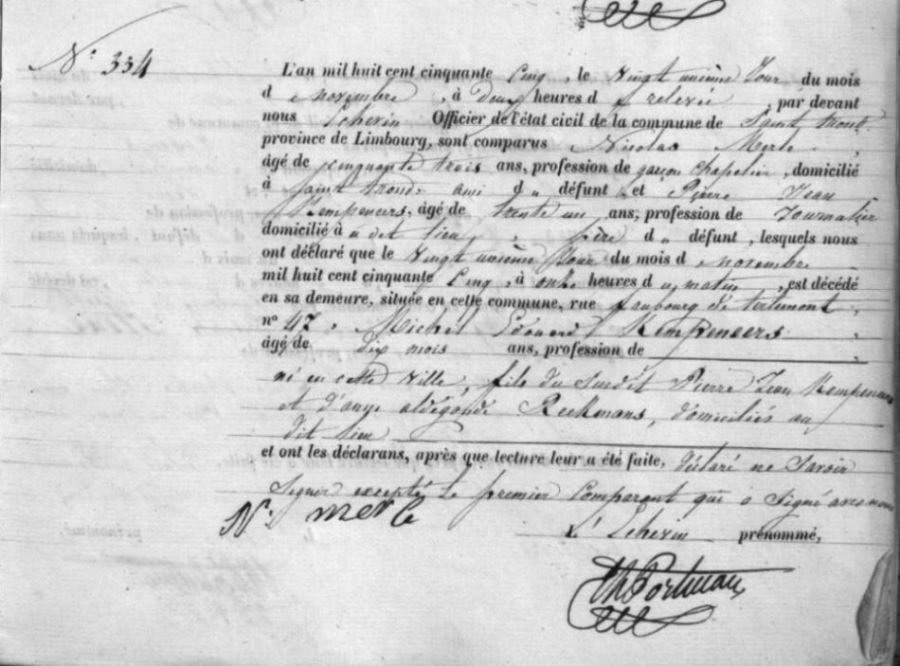 N° 334
L'an mil huit cent cinquante Cinq, le Vingt unième Jour du mois
de novembre, à Deux heures de relevée, par devant
nous Echevin Officier de l'état civil de la commune de Saint trond
province de Limbourg, sont comparus Nicolas Merle,
âgé de cinquante trois ans, profession de garçon Chapelier, domicilié
à Saint trond, ami du défunt et Pierre Jean
Kempeneers, âgé de trente un ans, profession de Journalier
domicilié à u dit lieu, père du défunt, lesquels nous
ont déclaré que le Vingt unième Jour du mois de novembre
mil huit cent cinquante Cinq, à onze heures du matin, est décédé
en sa demeure, située en cette commune, rue faubourg de tirlemont,
n° 47, Michel Edouard Kempeneers,
âgé de dix mois ans, profession de
né en cette Ville, fils du Susdit Pierre Jean Kempeneers
et d'anne aldégonde Reekmans, domiciliés au
dit lieu
et ont les déclarans, après que lecture leur a été faite, déclaré ne Savoir
Signer excepté le premier Comparant qui a Signé avec nous
N: merle
L'Echevin prénommé,